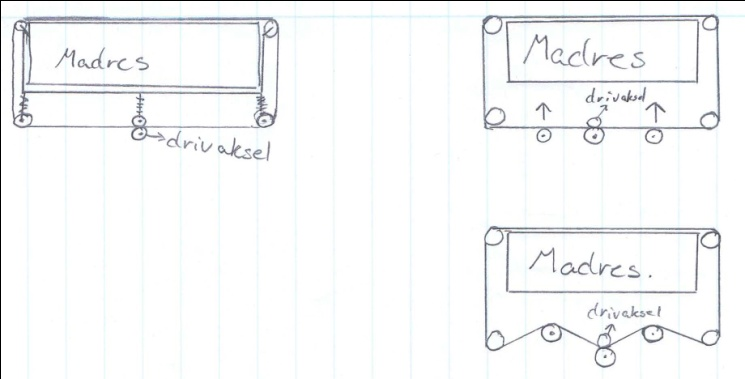 Madres
drivaksel
Madres
drivaksel
Madres.
drivaksel